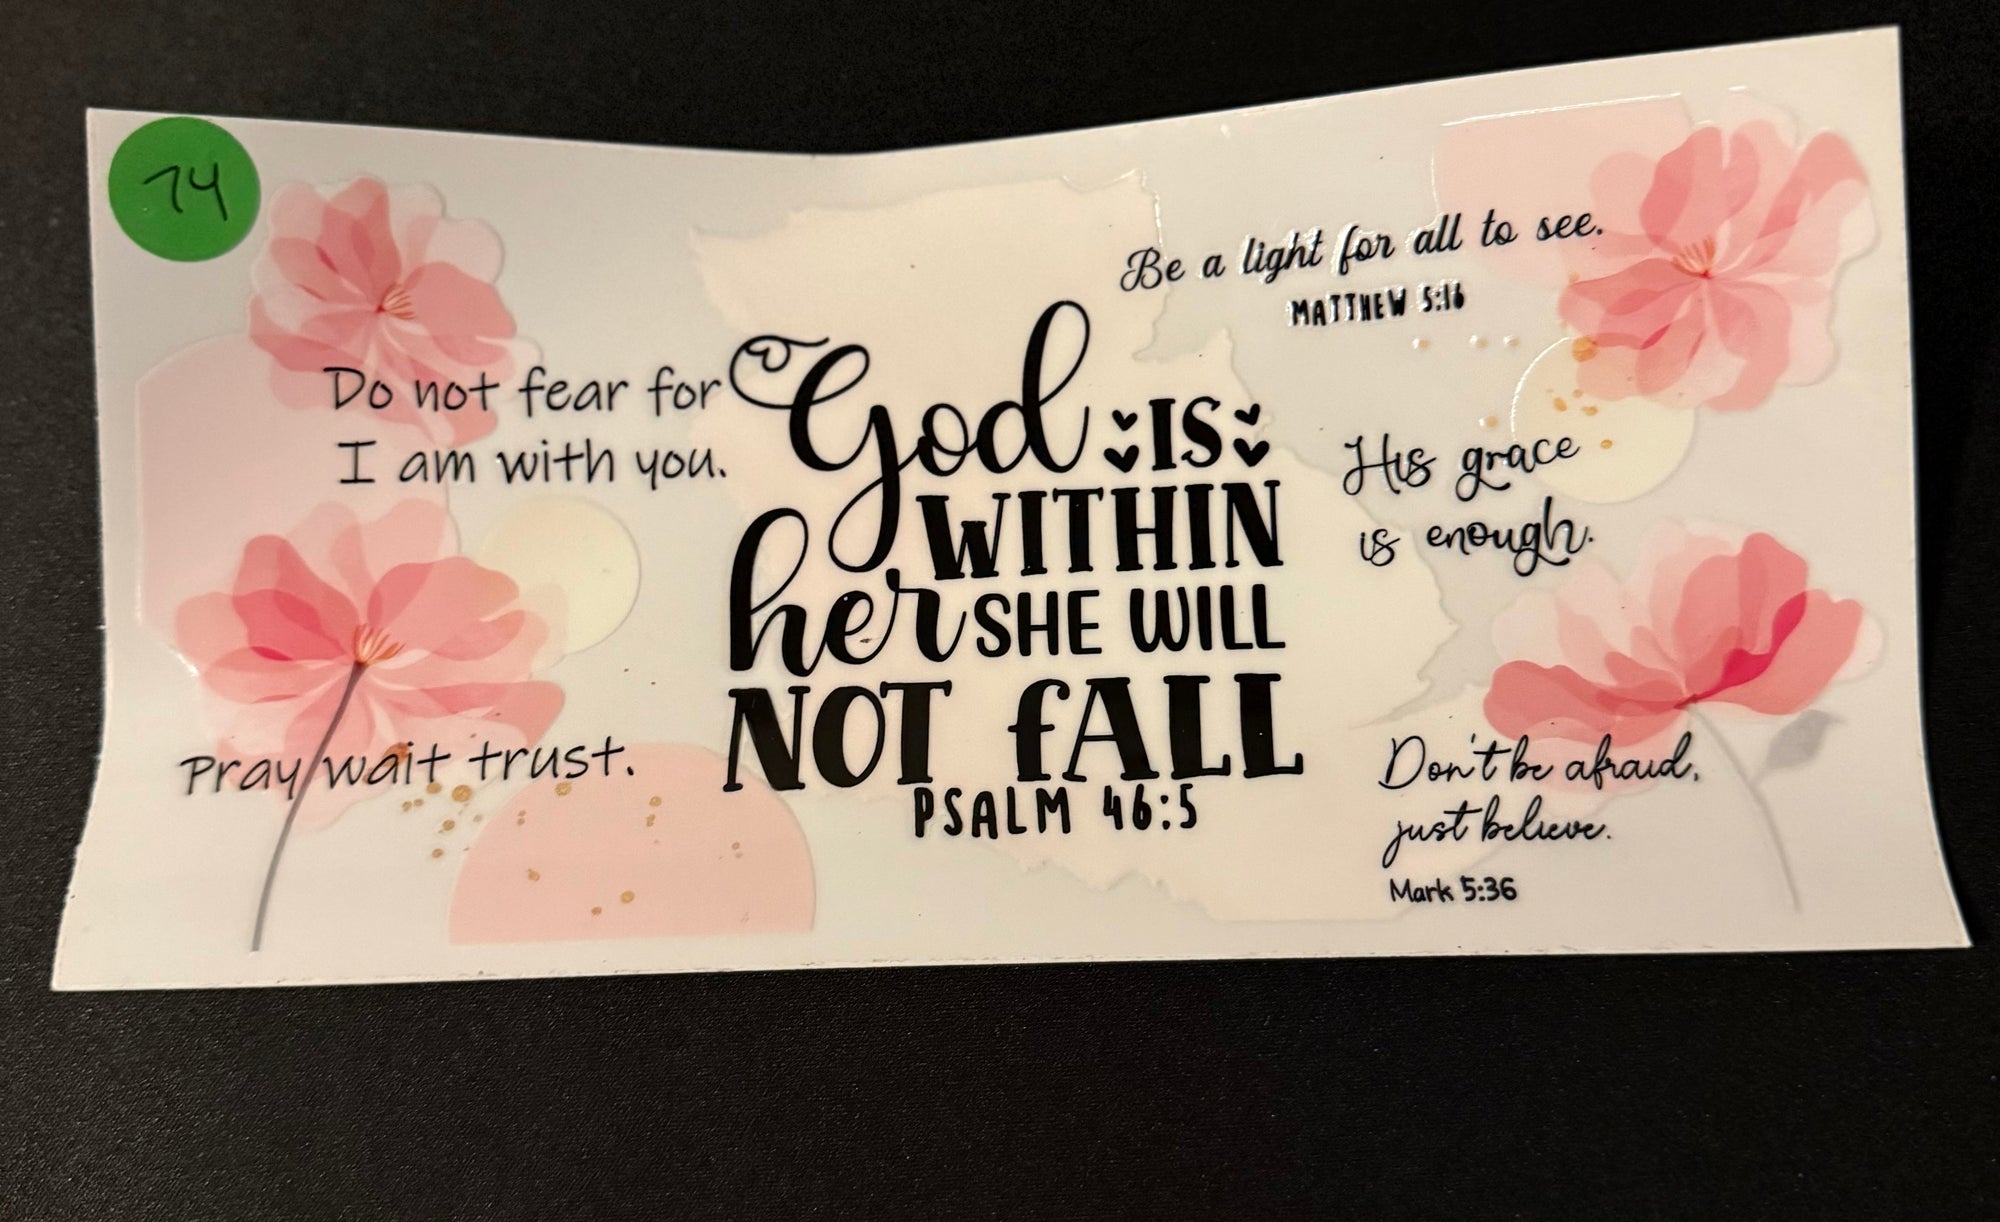 74
Do not fear for
I am with you.
Pray wait trust.
God IS
WITHIN
her SHE WILL
NOT fALL
PSALM 46:5
Be a light for all to see.
MATTHEW 5:16
His grace
is enough.
Don't be afraid,
just believe.
Mark 5:36